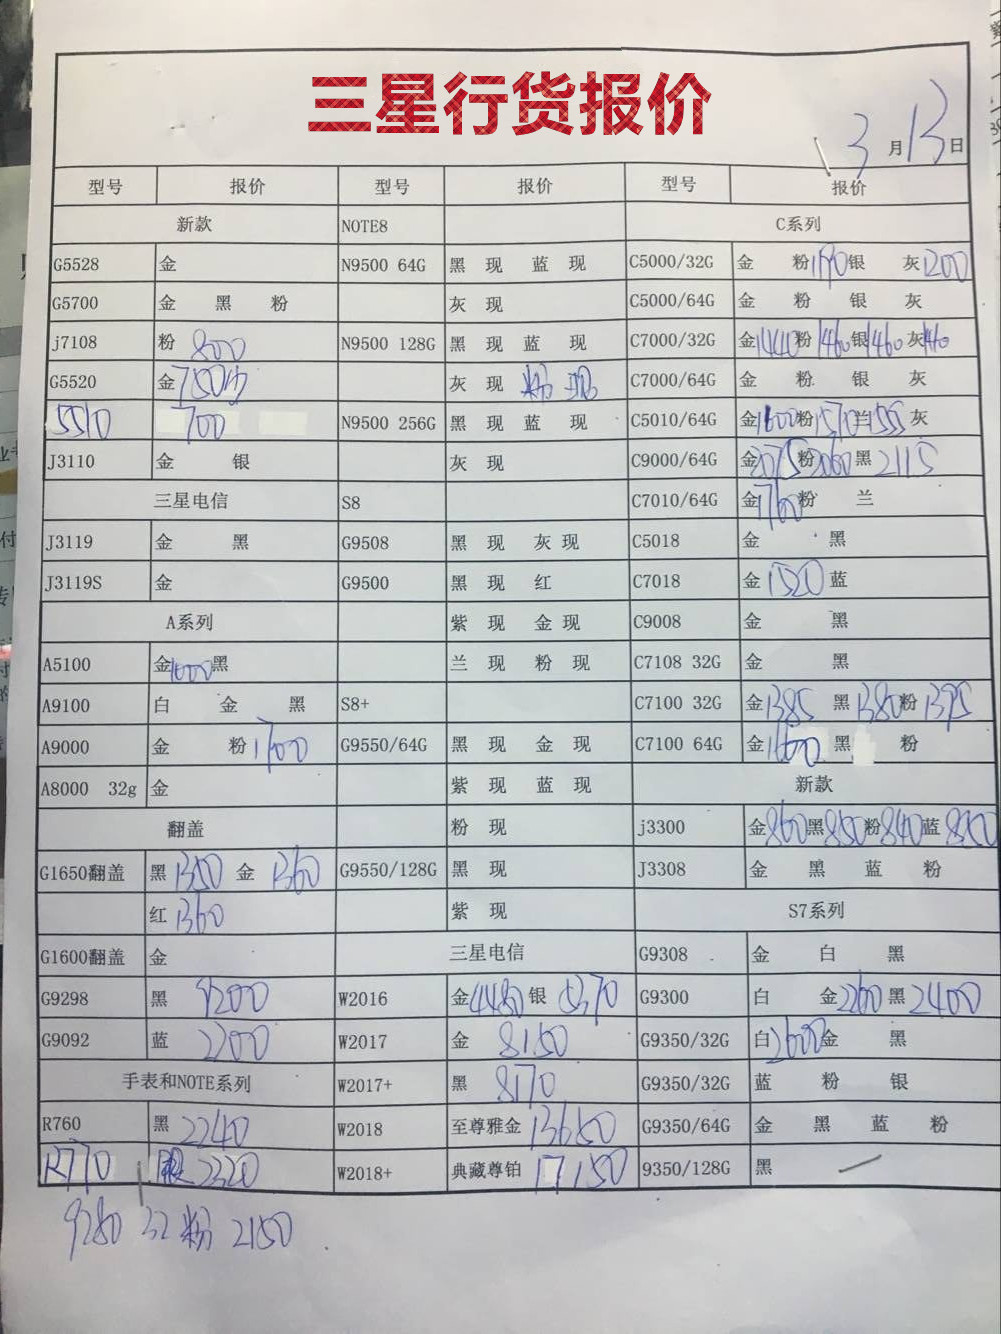 三星行货报价
3月13日
型号 报价 型号 报价 型号 报价
新款 NOTE8 C系列
G5528 金 N9500 64G 黑 现 蓝 现 C5000/32G 金 粉1190银 灰1200
G5700 金 黑 粉 灰 现 C5000/64G 金 粉 银 灰
j7108 粉 800 N9500 128G 黑 现 蓝 现 C7000/32G 金1440粉1460银1460灰1460
G5520 金750 灰 现 粉 现 C7000/64G 金 粉 银 灰
5510 700 N9500 256G 黑 现 蓝 现 C5010/64G 金1600粉1570兰155 灰
J3110 金 银 灰 现 C9000/64G 金2075粉2060黑2115
三星电信 S8 C7010/64G 金1760粉 兰
J3119 金 黑 G9508 黑 现 灰 现 C5018 金 黑
J3119S 金 G9500 黑 现 红 C7018 金1520蓝
A系列 紫 现 金 现 C9008 金 黑
A5100 金1000黑 兰 现 粉 现 C7108 32G 金 黑
A9100 白 金 黑 S8+ C7100 32G 金1385 黑1380粉1395
A9000 金 粉1700 G9550/64G 黑 现 金 现 C7100 64G 金1600 黑 粉
A8000 32g 金 紫 现 蓝 现 新款
翻盖 粉 现 j3300 金860黑850粉840蓝850
G1650翻盖 黑1350 金 1360 G9550/128G 黑 现 J3308 金 黑 蓝 粉
红1360 紫 现 S7系列
G1600翻盖 金 三星电信 G9308 金 白 黑
G9298 黑 9200 W2016 金4480银 5370 G9300 白 金2260黑2400
G9092 蓝 2200 W2017 金 8150 G9350/32G 白2600金 黑
手表和NOTE系列 W2017+ 黑 8170 G9350/32G 蓝 粉 银
R760 黑 2240 W2018 至尊雅金 13650 G9350/64G 金 黑 蓝 粉
R770 银 2320 W2018+ 典藏尊铂 17150 9350/128G 黑
9280 32 粉 2150